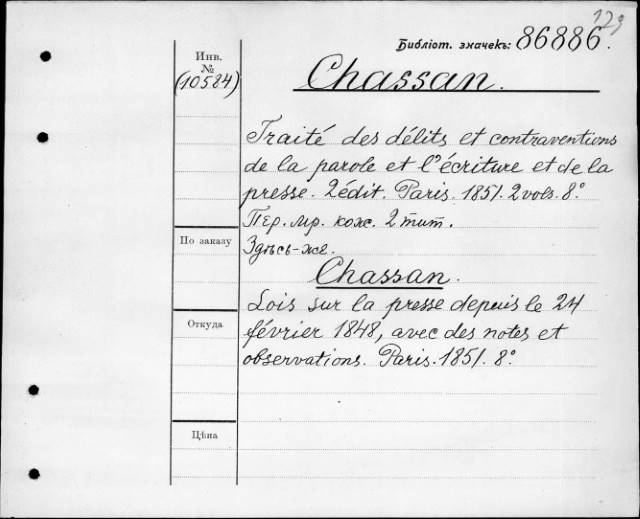 129
Библіот. значекъ: 86886.
Инв.
№
(10584)
Chassan.
Traité des délits et contraventions
de la parole et l'écriture et de la
presse. 2édit. Paris. 1851. 2 vols. 8º
Пер. мр. кож. 2 тит.
По заказу
Здѣсь-же
Chassan.
Откуда
Lois sur la presse depuis le 24
février 1848, avec des notes et
observations. Paris. 1851. 8º
Цѣна